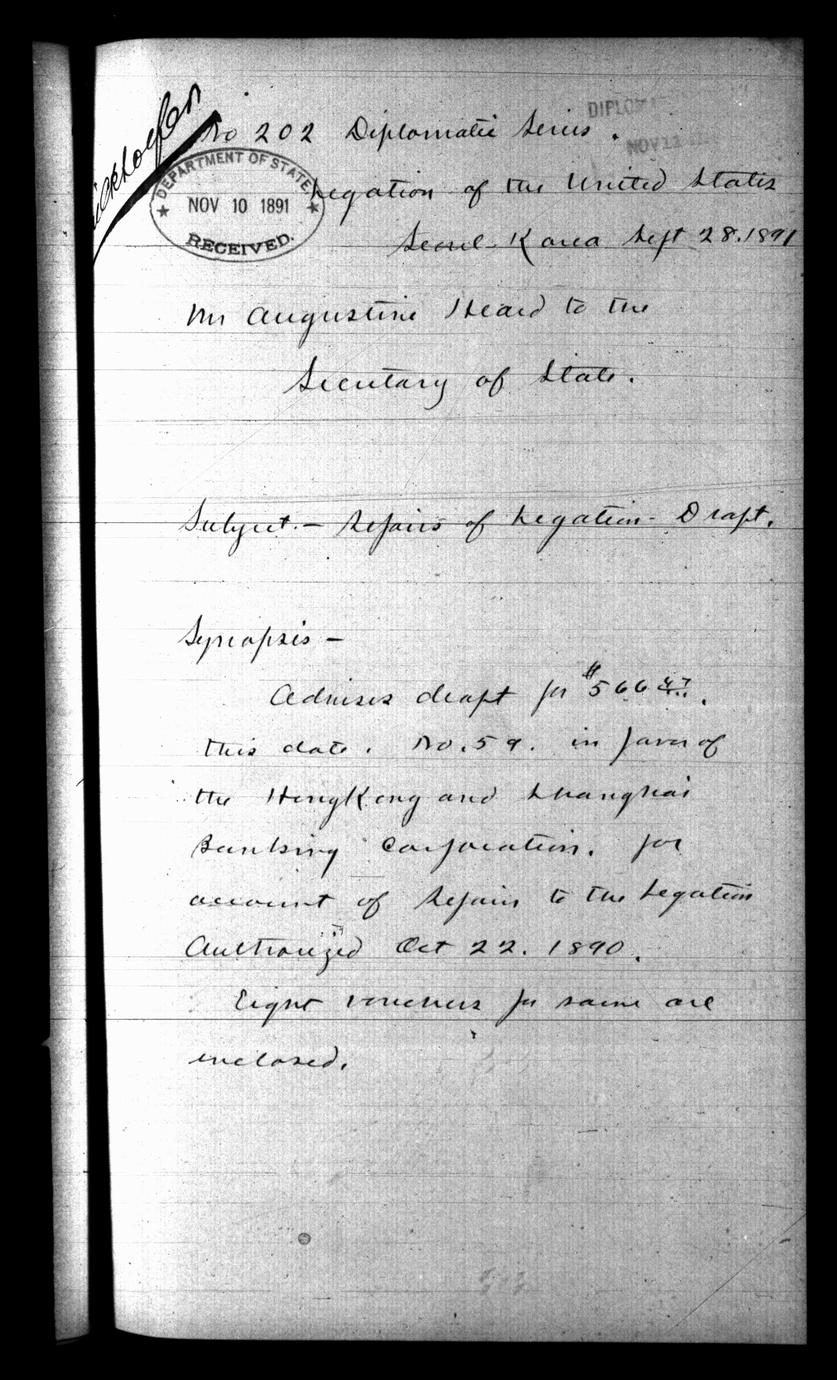 No 202 Diplomatic Series.
DEPARTMENT OF STATE
NOV 10 1891
RECEIVED.
NOV 12
Legation of the United States
Seoul Korea Sept 28. 1891
Mr Augustine Heard to the
Secretary of State.
Subject. — Repairs of Legation - Draft.
Synopsis —
Advises draft for $566 47/...
this date. No. 59. in favor of
the HongKong and Shanghai
Banking Corporation. for
account of Repairs to the Legation
Authorized Oct 22. 1890.
Eight vouchers for same are
enclosed.